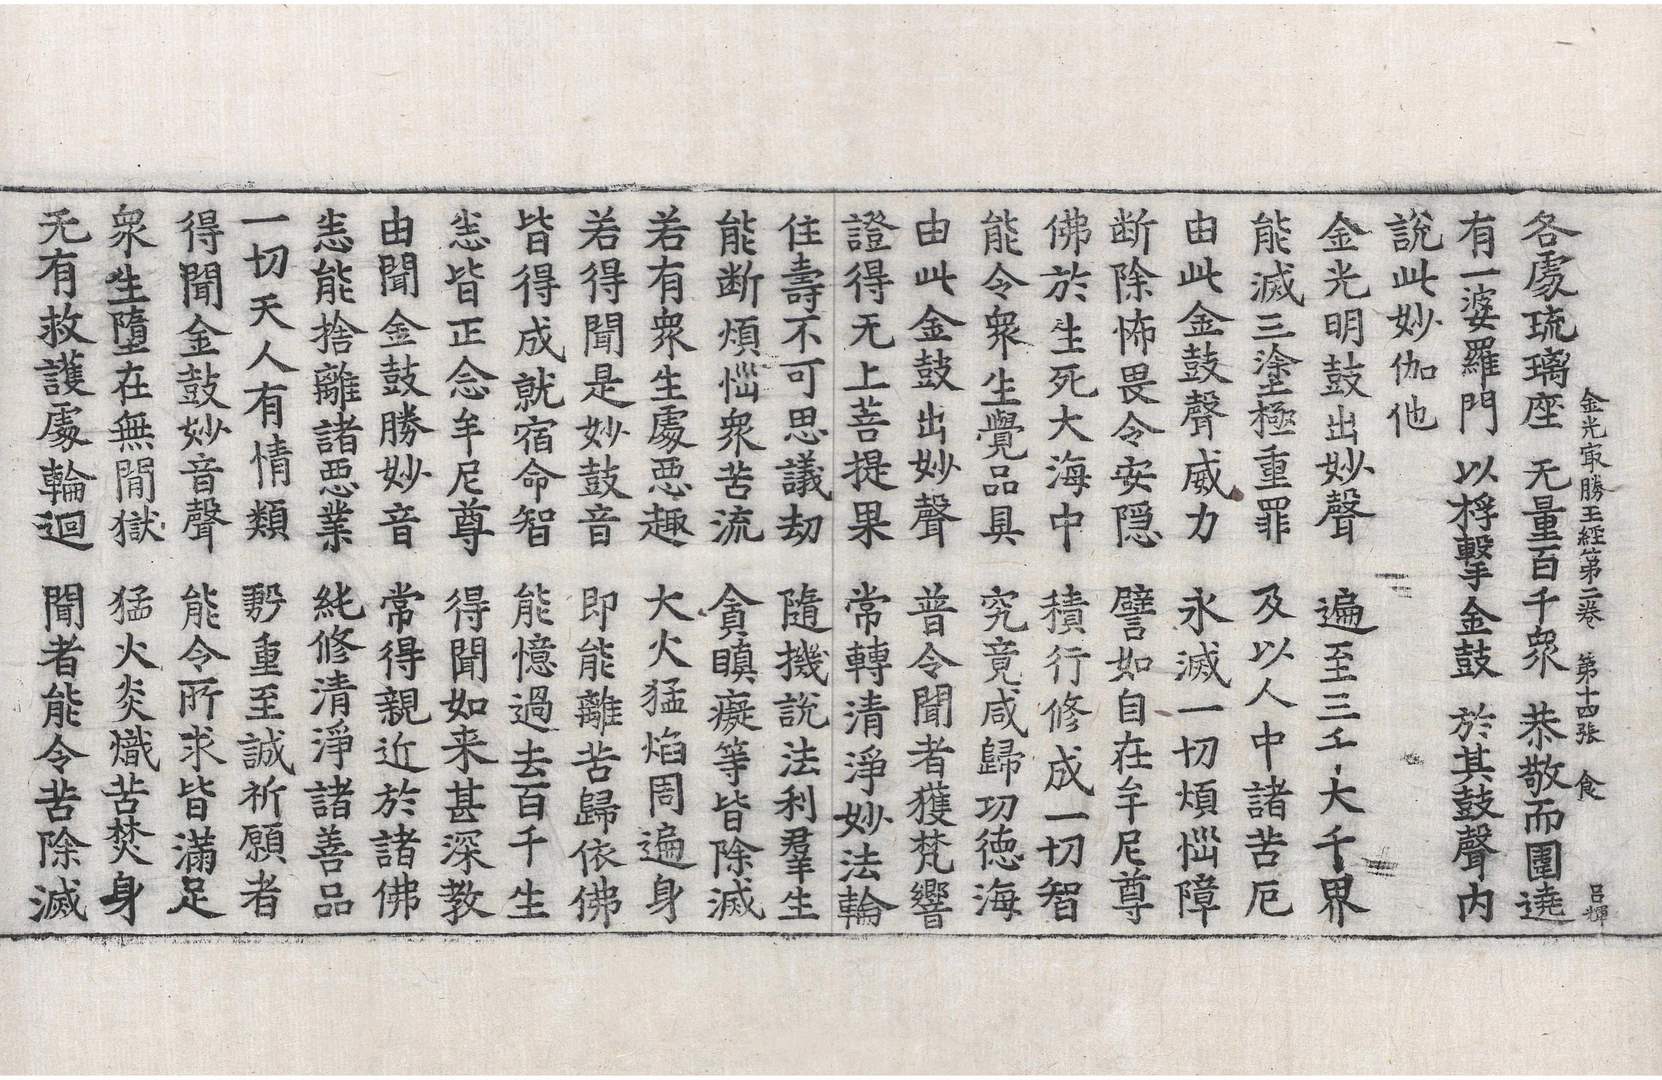 金光冣勝王經第二卷　第十四張　食　吕輝
各處琉璃座　无量百千衆　恭敬而圍遶
有一婆羅門　以桴擊金鼓　於其鼓聲内
說此妙伽他
金光明鼓出妙聲　遍至三千大千界
能滅三塗極重罪　及以人中諸苦厄
由此金鼓聲威力　永滅一切煩惱障
断除怖畏令安隠　譬如自在牟尼尊
佛於生死大海中　積行修成一切智
能令衆生覺品具　究竟咸歸功德海
由此金鼓出妙聲　普令聞者獲梵響
證得无上菩提果　常轉清淨妙法輪
住壽不可思議劫　隨機說法利羣生
能断煩惱衆苦流　貪瞋癡等皆除滅
若有衆生處惡趣　大火猛焰周遍身
若得聞是妙鼓音　即能離苦歸依佛
皆得成就宿命智　能憶過去百千生
悉皆正念牟尼尊　得聞如来甚深教
由聞金鼓勝妙音　常得親近於諸佛
悉能捨離諸惡業　純修清淨諸善品
一切天人有情類　慇重至誠祈願者
得聞金鼓妙音聲　能令所求皆滿足
衆生墮在無間獄　猛火炎熾苦焚身
无有救護處輪迴　聞者能令苦除滅